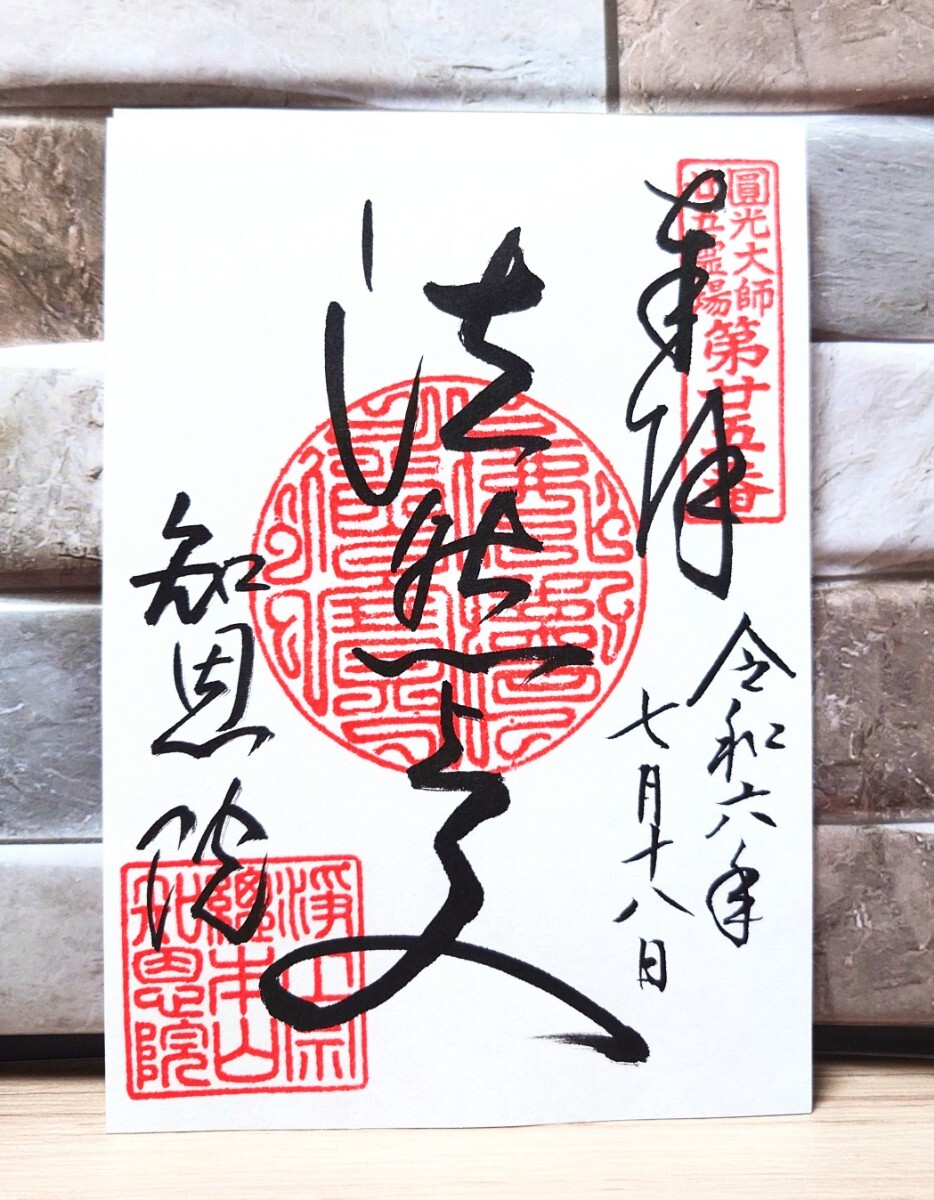 圓光大師
廿五霊場
第廿五番
奉拝
令和六年
七月十八日
法然上人
知恩院
浄土宗
總本山
知恩院